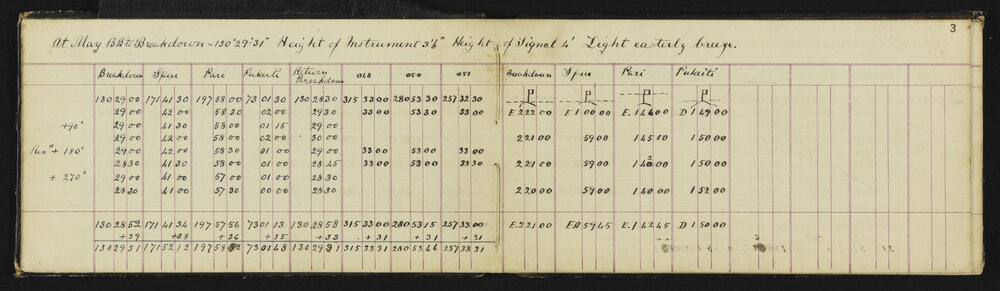 3
At May BB to Breakdown = 130°29'31" Height of Instrument 3'6" Height of Signal 4' Light easterly breeze.
Breakdown Spur Pari Pukeiti Return Breakdown 048 050 051 Breakdown Spur Pari Pukeiti
130 29 00 171 41 30 197 58 00 73 01 30 130 28 30 315 33 00 280 53 30 257 32 30
29 00 42 00 58 30 02 00 29 30 33 00 53 30 33 00 E 2 22 00 E 1 00 00 E. 1 44 00 D 1 49 00
+90° 29 00 41 30 58 00 01 15 29 00
29 00 42 00 58 00 02 00 30 00 2 21 00 59 00 1 45 00 1 50 00
+ 180° 29 00 42 00 58 30 01 00 29 00 33 00 53 00 33 00
28 30 41 30 58 00 01 00 28 45 33 00 53 00 33 30 2 21 00 59 00 1 42 00 1 50 00
+ 270° 29 00 41 00 57 00 01 00 28 30
28 30 41 00 57 30 00 00 28 30 2 20 00 59 00 1 40 00 1 52 00
130 28 52 171 41 34 197 57 56 73 01 13 130 28 58 315 33 00 280 53 15 257 33 00 E. 2 21 00 E 0 59 45 E. 1 42 45 D 1 50 00
+39 +38 +36 +35 +33 +31 +31 +31
130 29 31 171 52 12 197 58 32 73 01 48 130 29 31 315 33 31 280 53 46 257 33 31